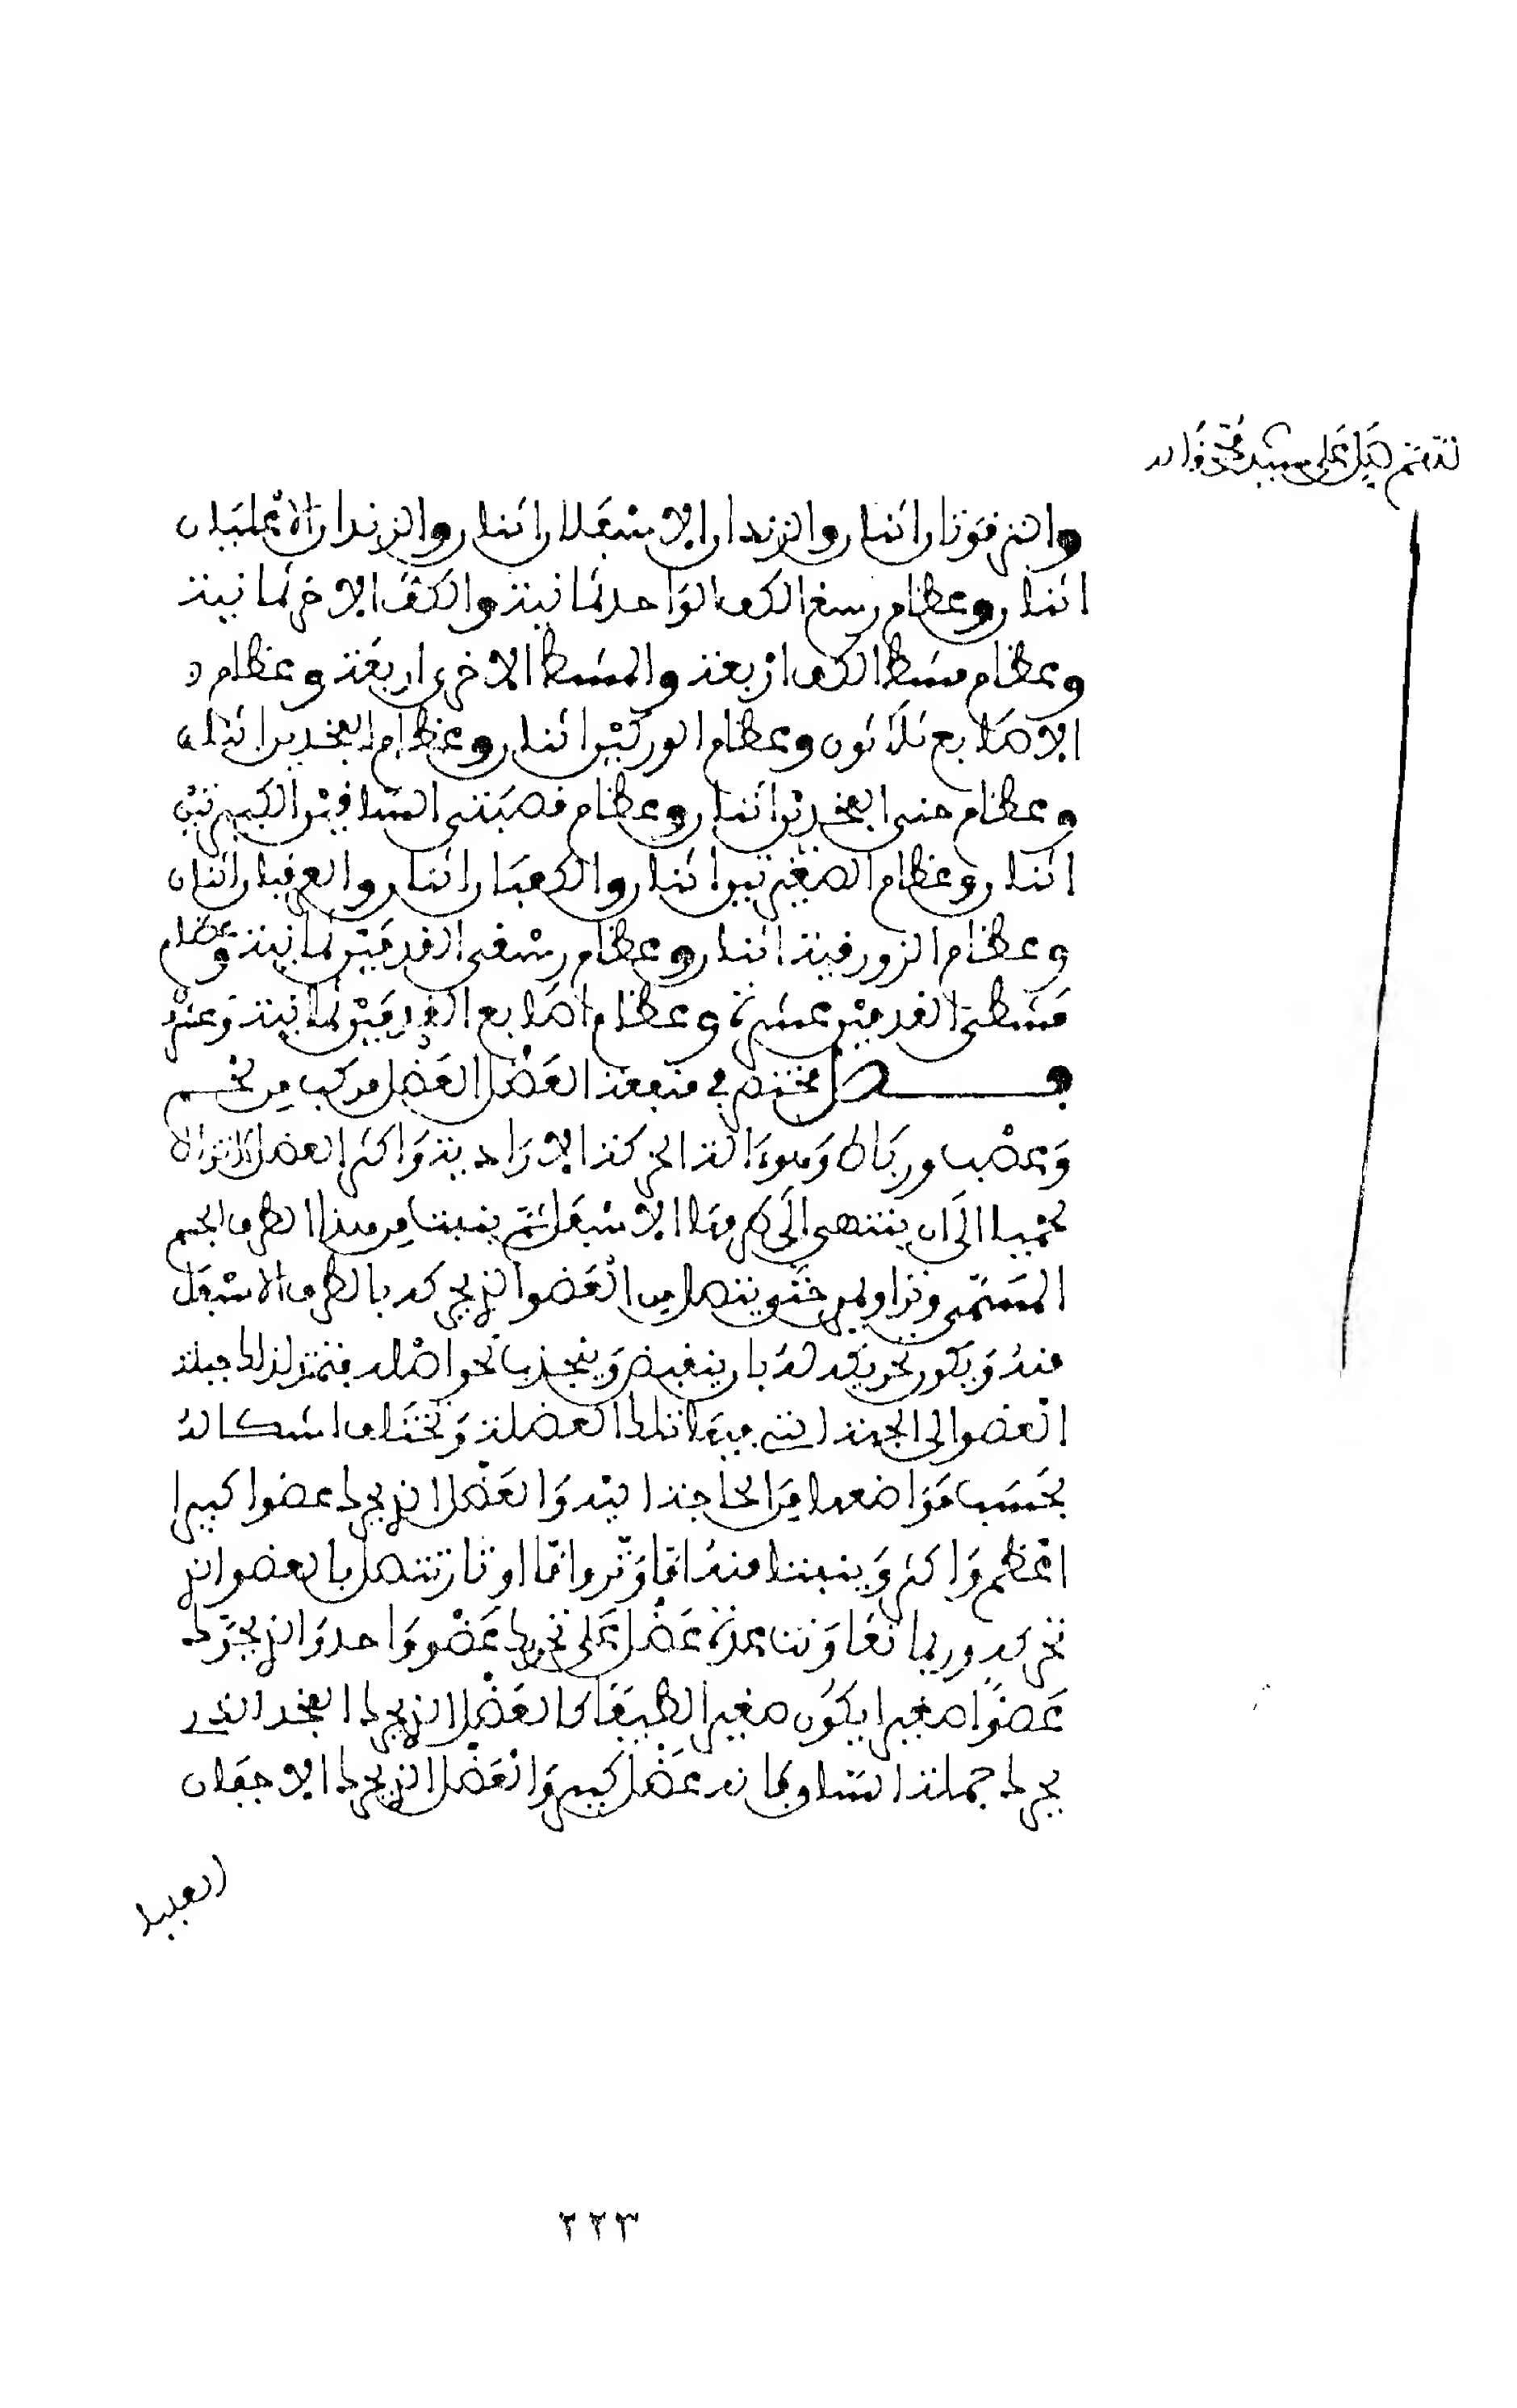 والترقوتان اثنان والزندان الاسفلان اثنان والزندان الاعليان
اثنان وعظام رسغ الكف الواحد ثمانية والكف الاخر ثمانية
وعظام مشط الكف اربعة والمشط الاخرى اربعة وعظام
الاصابع ثلاثون وعظام الوركين اثنان وعظام الفخدين اثنان
وعظام الفخدين اثنان وعظام قصبتي الساقين الكبيرتين
اثنان وعظام الصغيرتين اثنان والكعبان اثنان والعرقبان اثنان
وعظام الزورقية اثنان وعظام رسغى القدمين ثمانية وعظام
مشطى القدمين عشرة وعظام اصابع القدمين ثمانية وعشرو
فصل مختصر في منفعة العضل العضل مركب من لحم
وعصب ورباط وهو ءالة الحركة الارادية واكثر العضل
لحميا الى ان ينتهى الى طرفها الاسفل ثم ينبت من هذا الطرف الجسم
المسمى وترا ويمر حتى يتصل من العضو الذي يحركه بالطرف الاسفل
منه ويكون تحريكه له بان ينقبض وينجذب نحو اصله فيتميز لذلك جملة
العضو الى الجهة التي فيها تلك العضلة وتختلف اشكاله
بحسب مواضعها من الحاجة اليه والعضل الذي يحرك عضوا كبيرا
اعظم واكثر وينبت منه اما وتر واما اوتار تتصل بالعضو الذي
تحركه وربما تعاونت عدة عضل على تحريك عضو واحد والذي يحرك
عضوا صغيرا يكون صغيرا لطيفا كالعضل الذي يحرك الفخد الذي
يحرك جملة الساق فانه عضل كبير والعضل الذي يحرك الاجفان
٢٢٣